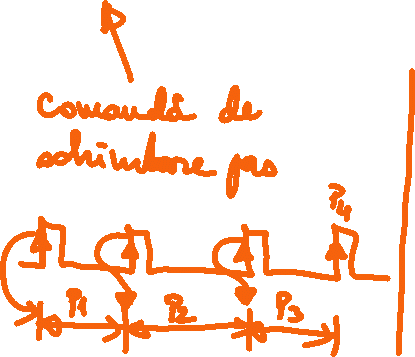 Comandă de
schimbare pas
P4
P1 P2 P3